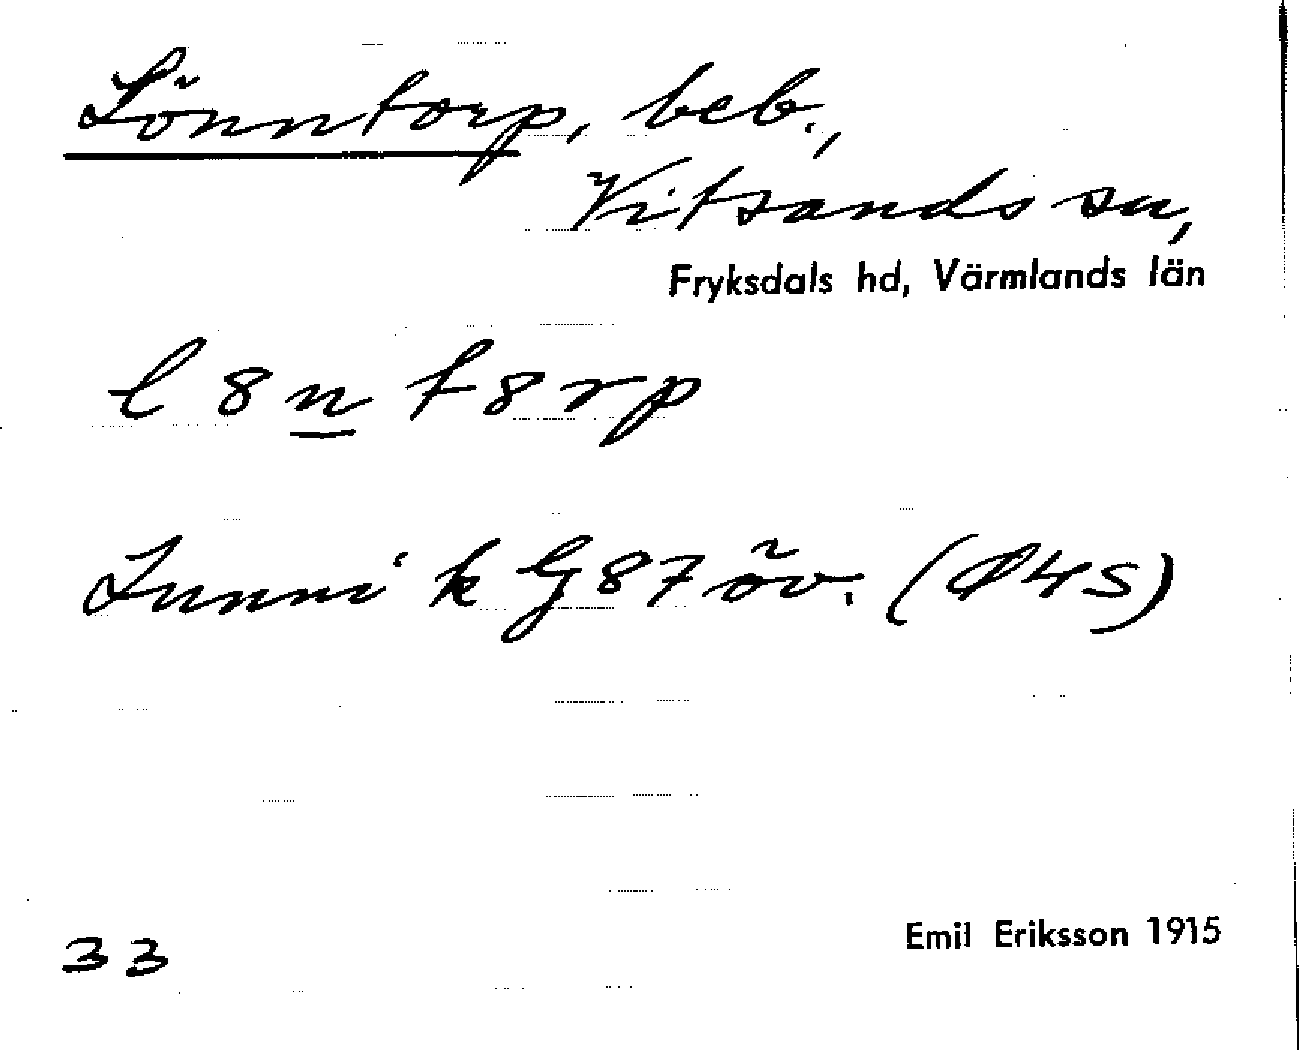 Lönntorp, beb.,
Vitsands sn,
Fryksdals hd, Värmlands län
l8nt8rp
Lunni k G87 öv. (A4S)
33
Emil Eriksson 1915